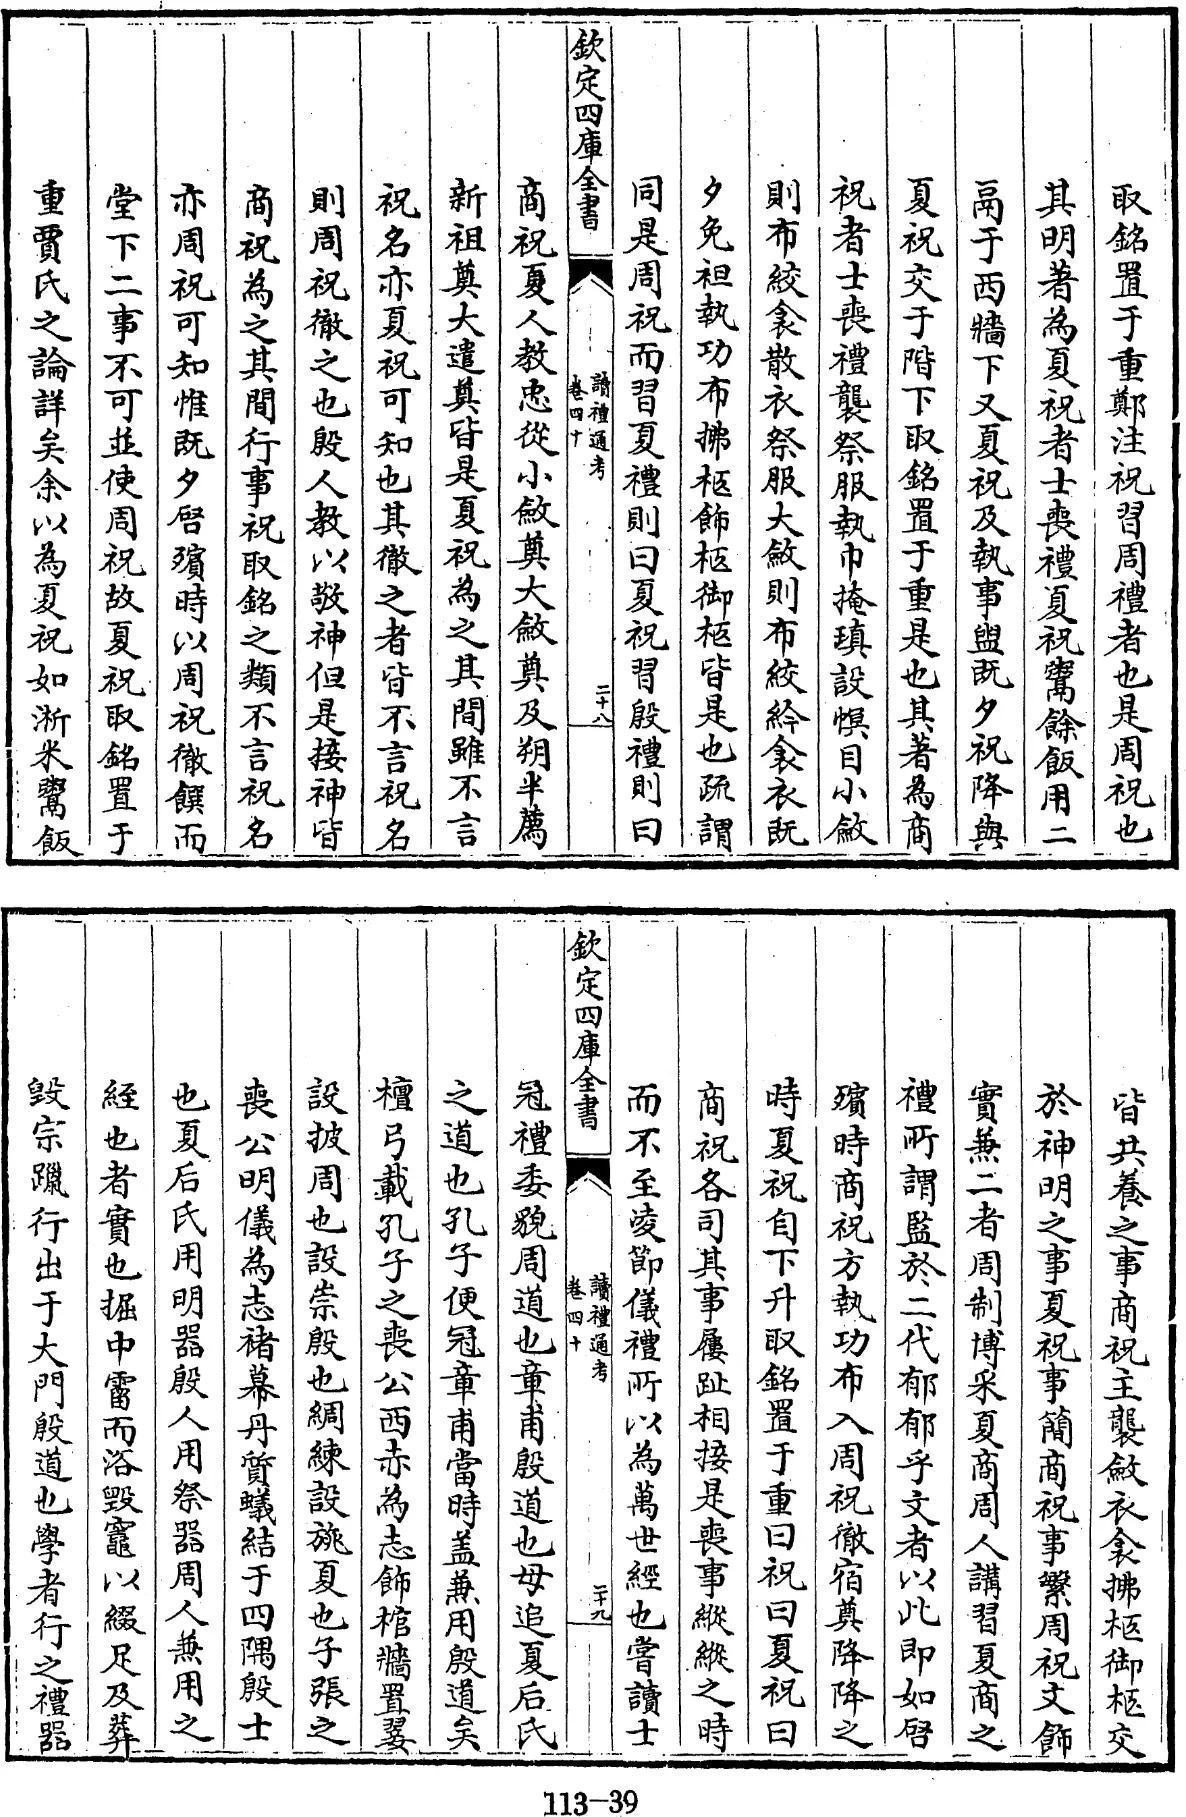 取銘置于重鄭注祝習周禮者也是周祝也
其明著為夏祝者士喪禮夏祝鬻餘飯用二
鬲于西牆下又夏祝及執事盥既夕祝降與
夏祝交于階下取銘置于重是也其著為商
祝者士喪禮襲祭服執巾掩瑱設幎目小斂
則布絞衾散衣祭服大斂則布絞紟衾衣既
夕免袒執功布拂柩飾柩御柩皆是也疏謂
同是周祝而習夏禮則曰夏祝習殷禮則曰
欽定四庫全書
讀禮通考
卷四十
二十八
商祝夏人教忠從小斂奠大斂奠及朔半薦
新祖奠大遣奠皆是夏祝為之其間雖不言
祝名亦夏祝可知也其徹之者皆不言祝名
則周祝徹之也殷人教以敬神但是接神皆
商祝為之其間行事祝取銘之類不言祝名
亦周祝可知惟既夕啓殯時以周祝徹饌而
堂下二事不可並使周祝故夏祝取銘置于
重賈氏之論詳矣余以為夏祝如淅米鬻飯
皆共養之事商祝主襲斂衣衾拂柩御柩交
於神明之事夏祝事簡商祝事繁周祝文飾
實兼二者周制博采夏商周人講習夏商之
禮所謂監於二代郁郁乎文者以此即如啓
殯時商祝方執功布入周祝徹宿奠降降之
時夏祝自下升取銘置于重曰祝曰夏祝曰
商祝各司其事屨趾相接是喪事縱縱之時
而不至凌節儀禮所以為萬世經也嘗讀士
欽定四庫全書
讀禮通考
卷四十
二十九
冠禮委貌周道也章甫殷道也毋追夏后氏
之道也孔子便冠章甫當時蓋兼用殷道矣
檀弓載孔子之喪公西赤為志飾棺牆置翣
設披周也設崇殷也綢練設旐夏也子張之
喪公明儀為志褚幕丹質蟻結于四隅殷士
也夏后氏用明器殷人用祭器周人兼用之
經也者實也掘中霤而浴毀竈以綴足及葬
毀宗躐行出于大門殷道也學者行之禮器
113-39